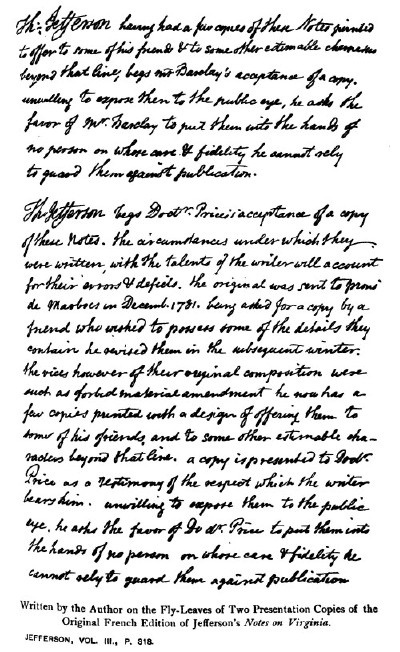 Th: Jefferson having had a few copies of these Notes printed
to offer to some of his friends & to some other estimable characters
beyond that line, begs mr Barclay's acceptance of a copy.
unwilling to expose them to the public eye, he asks the
favor of Mr. Barclay to put them into the hands of
no person on whose care & fidelity he cannot rely
to guard them against publication.
Th: Jefferson begs Doctr. Price's acceptance of a copy
of these Notes. the circumstances under which they
were written, with the talents of the writer will account
for their errors & defects. the original was sent to Monsr.
de Marbois in Decemb. 1781. being asked for a copy by a
friend who wished to possess some of the details they
contain he revised them in the subsequent winter.
the vices however of their original composition were
such as forbid material amendment. he now has a
few copies printed with a design of offering them to
some of his friends, and to some other estimable cha-
racters beyond that line. a copy is presented to Doctr.
Price as a testimony of the respect which the writer
bears him. unwilling to expose them to the public
eye, he asks the favor of Doctr. Price to put them into
the hands of no person on whose care & fidelity he
cannot rely to guard them against publication
Written by the Author on the Fly-Leaves of Two Presentation Copies of the
Original French Edition of Jefferson's Notes on Virginia.
JEFFERSON, VOL. III., P. 318.